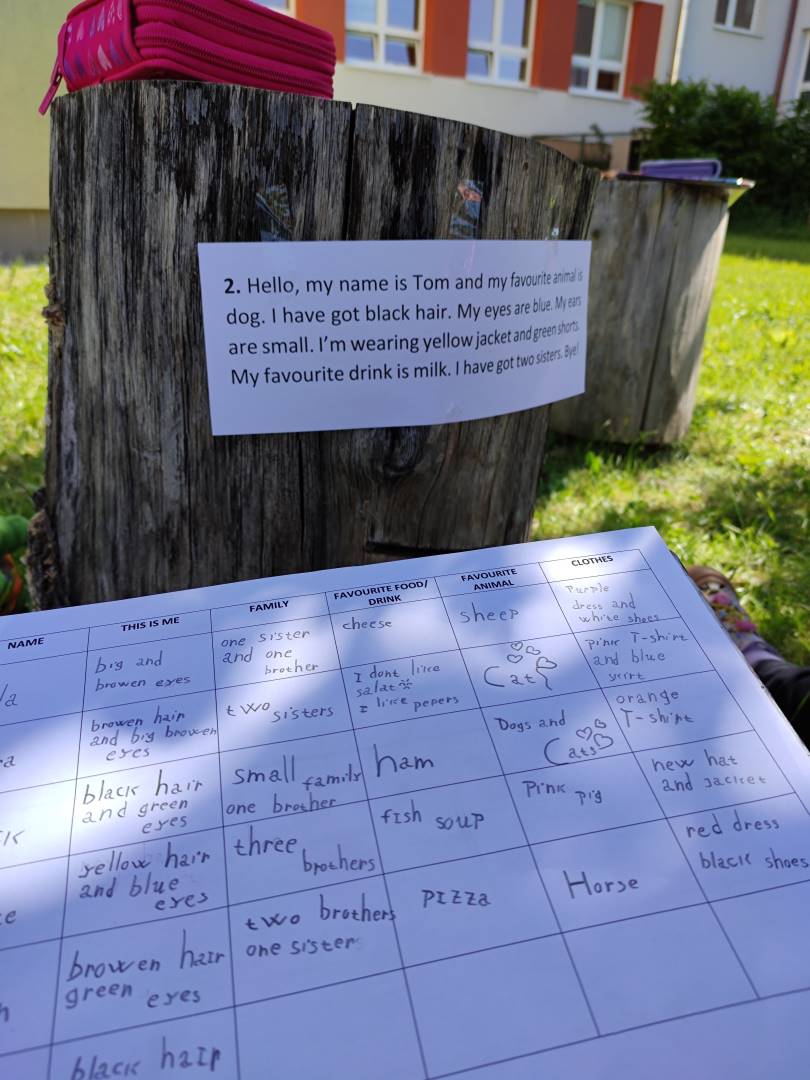 2. Hello, my name is Tom and my favourite animal is
dog. I have got black hair. My eyes are blue. My ears
are small. I'm wearing yellow jacket and green shorts.
My favourite drink is milk. I have got two sisters. Bye!
NAME
THIS IS ME
FAMILY
FAVOURITE FOOD/
DRINK
FAVOURITE
ANIMAL
CLOTHES
big and
browen eyes
one sister
and one
brother
cheese
sheep
Purple
dress and
white shoes
browen hair
and big browen
eyes
two sisters
I dont like
salat
I like pepers
Cat
pink T-shirt
and blue
black hair
and green
eyes
small family
one brother
ham
Dogs and
Cats
orange
T-shirt
yellow hair
and blue
eyes
three
brothers
fish soup
Pink pig
new hat
and jacket
browen hair
green eyes
two brothers
one sister
pizza
Horse
red dress
black shoes
black hair